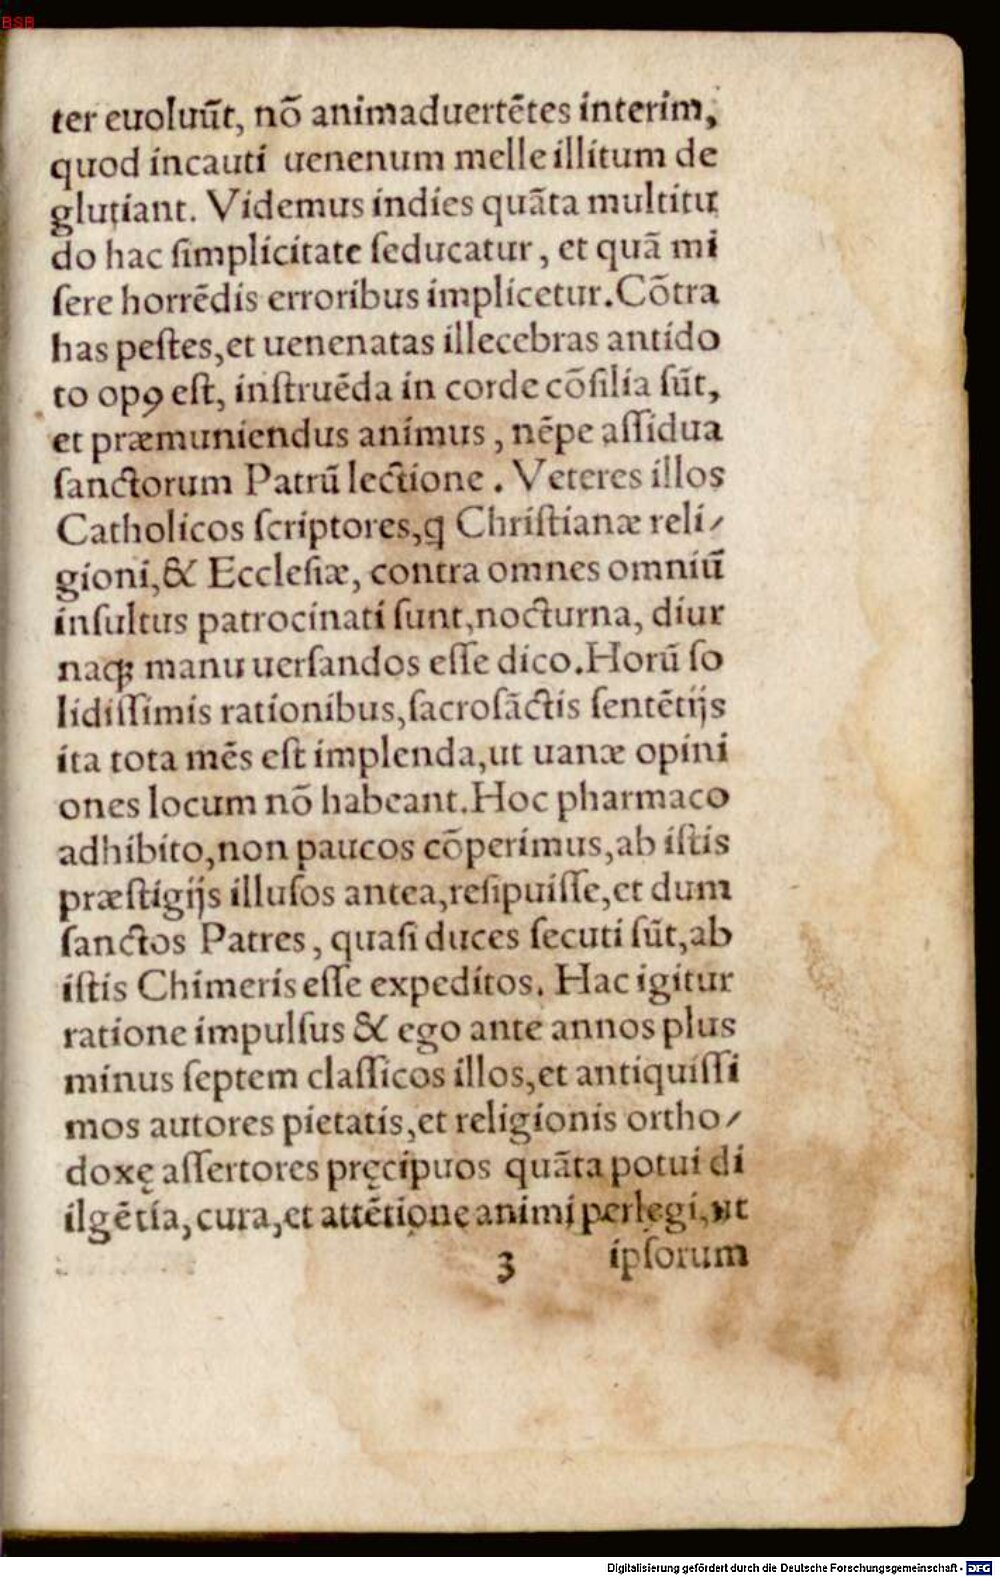 BSB
ter euoluũt, nõ animaduertẽtes interim,
quod incauti uenenum melle illitum de
glutiant. Videmus indies quãta multitu
do hac ſimplicitate ſeducatur, et quã mi
ſere horrẽdis erroribus implicetur. Cõtra
has peſtes, et uenenatas illecebras antido
to opꝰ eſt, inſtruẽda in corde cõſilia ſũt,
et præmuniendus animus, nẽpe aſſidua
ſanctorum Patrũ lectione. Veteres illos
Catholicos ſcriptores, ꝗ Chriſtianæ reli/
gioni, & Eccleſiæ, contra omnes omniũ
inſultus patrocinati ſunt, nocturna, diur
naqꝫ manu uerſandos eſſe dico. Horũ ſo
lidiſſimis rationibus, ſacroſãctis ſentẽtijs
ita tota mẽs eſt implenda, ut uanæ opini
ones locum nõ habeant. Hoc pharmaco
adhibito, non paucos cõperimus, ab iſtis
præſtigijs illuſos antea, reſipuiſſe, et dum
ſanctos Patres, quaſi duces ſecuti ſũt, ab
iſtis Chimeris eſſe expeditos. Hac igitur
ratione impulſus & ego ante annos plus
minus ſeptem claſſicos illos, et antiquiſſi
mos autores pietatis, et religionis ortho/
doxę aſſertores pręcipuos quãta potui di
ilgẽtia, cura, et attẽtione animi perlegi, ut
3 ipſorum
Digitalisierung gefördert durch die Deutsche Forschungsgemeinschaft - DFG